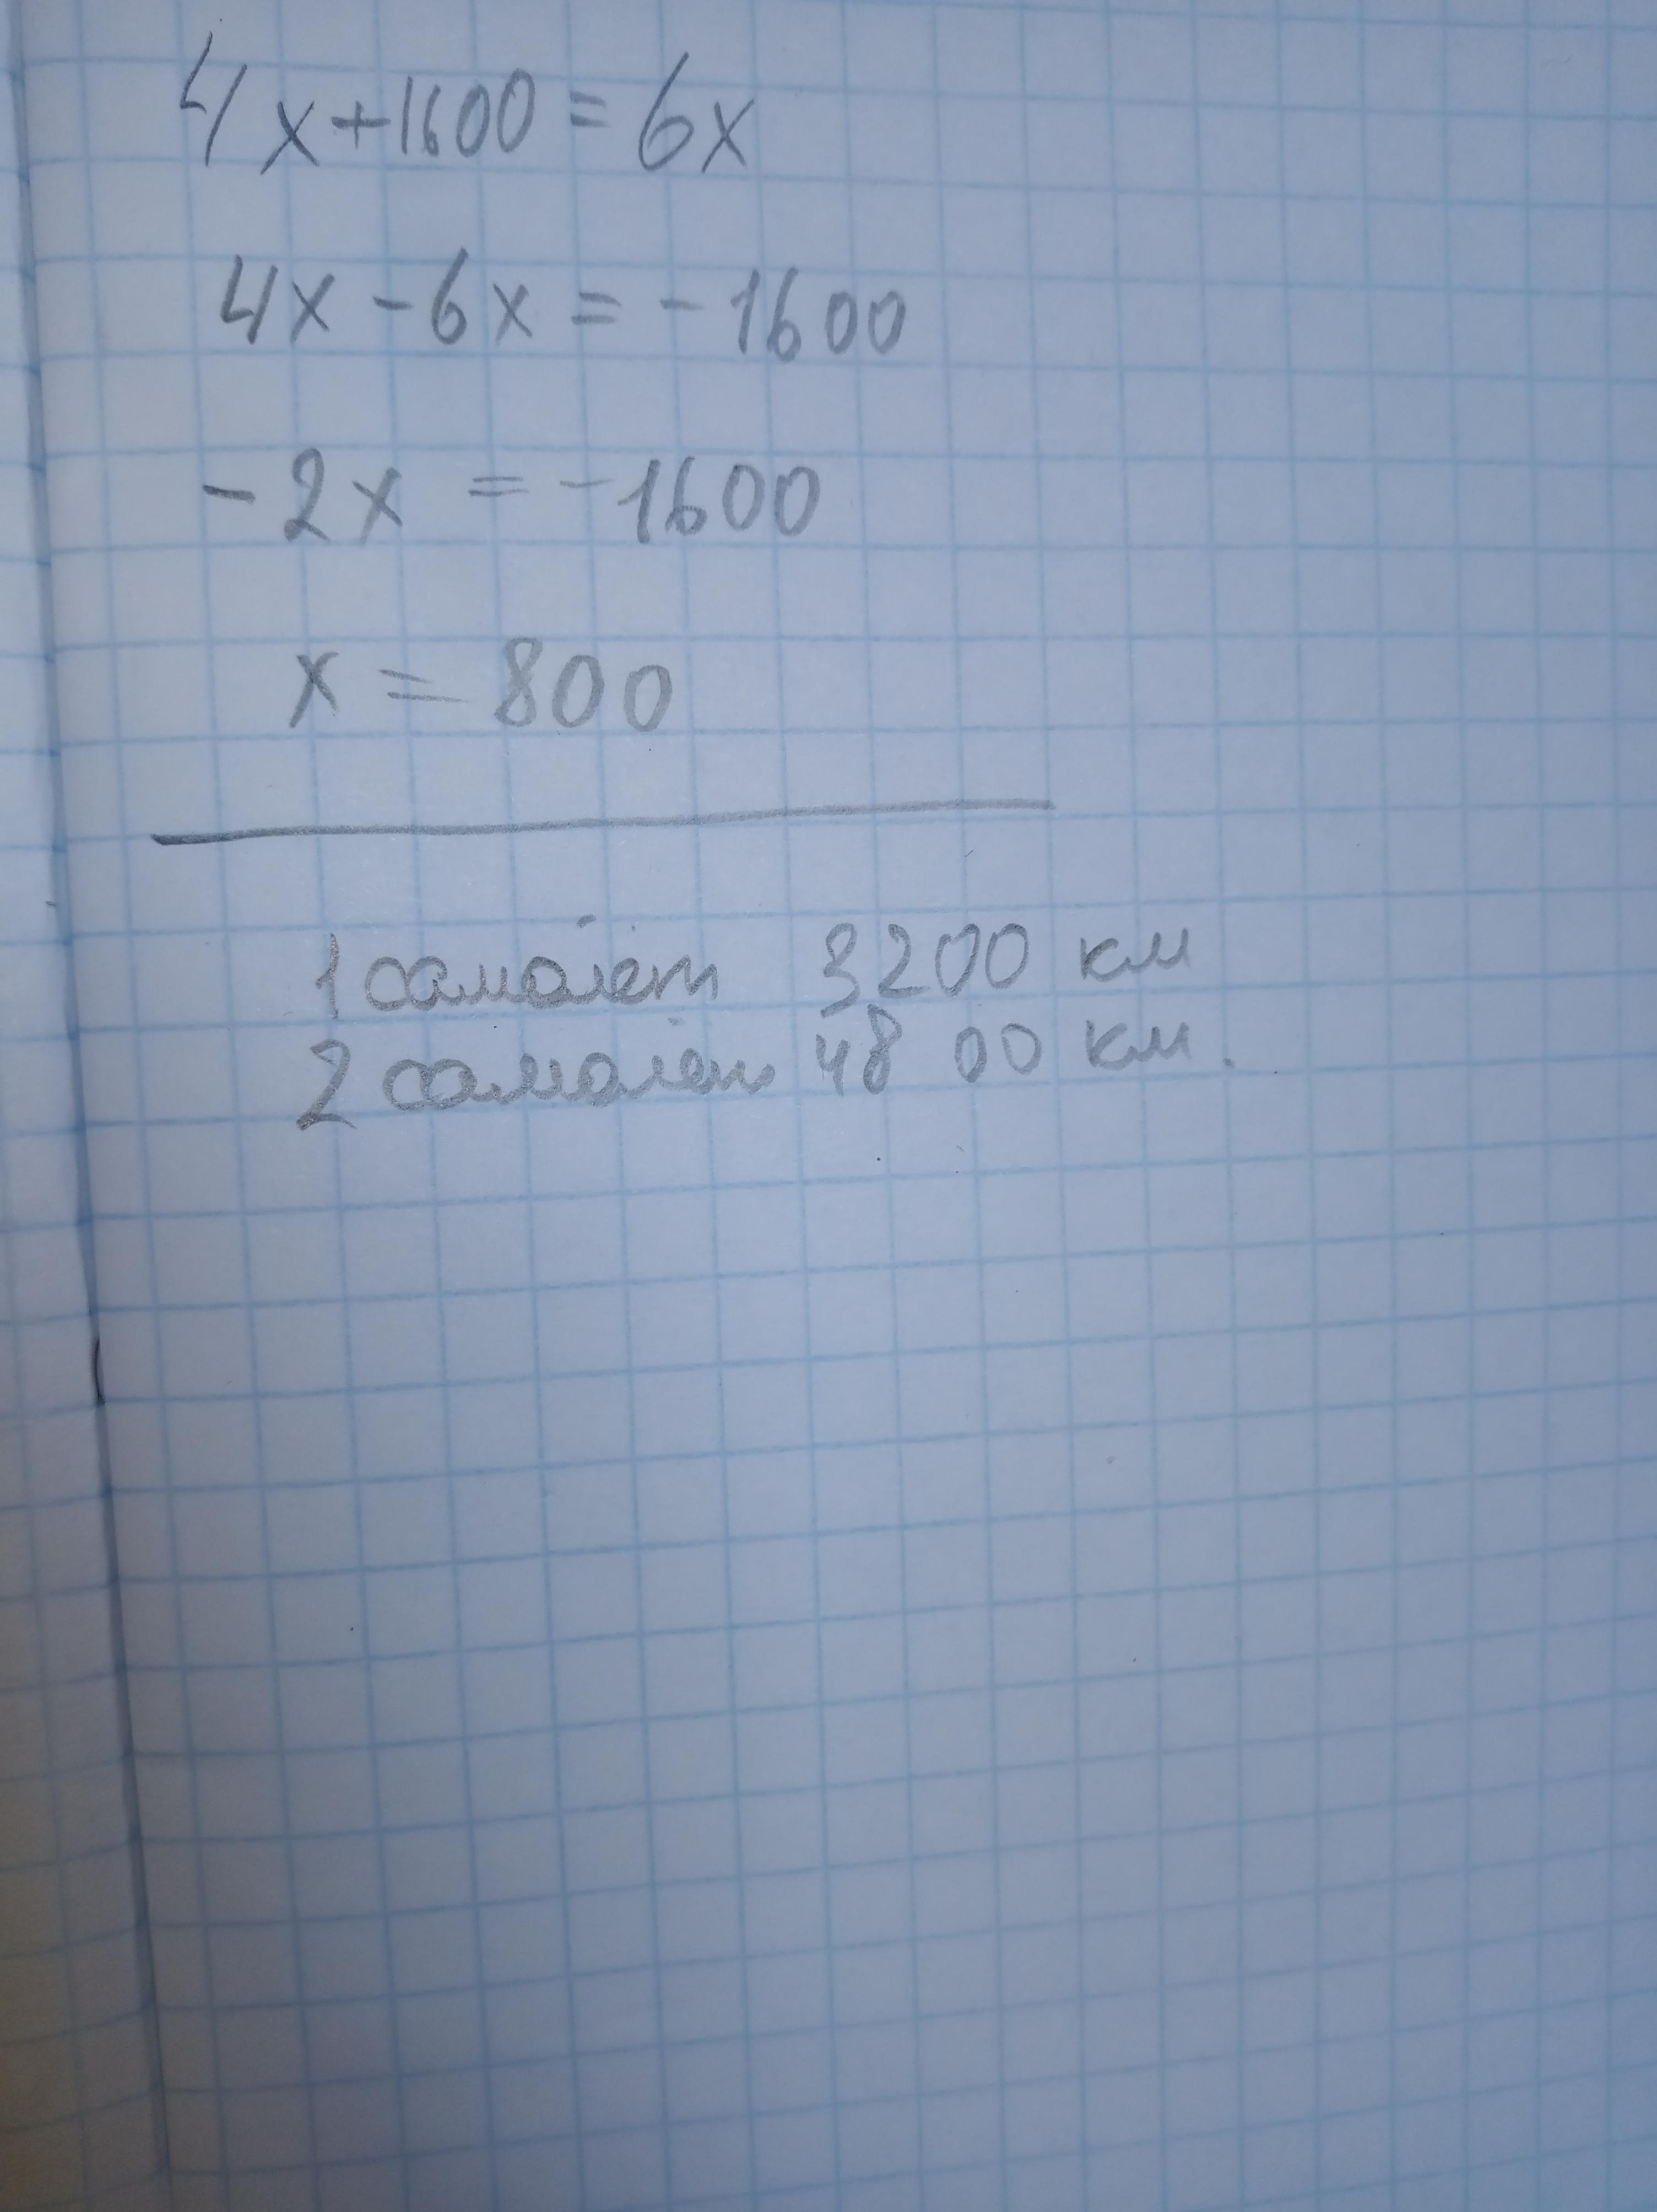 4x+1600=6x
4x-6x=-1600
-2x=-1600
x=800
1 самолёт 3200 км
2 самолёт 4800 км.